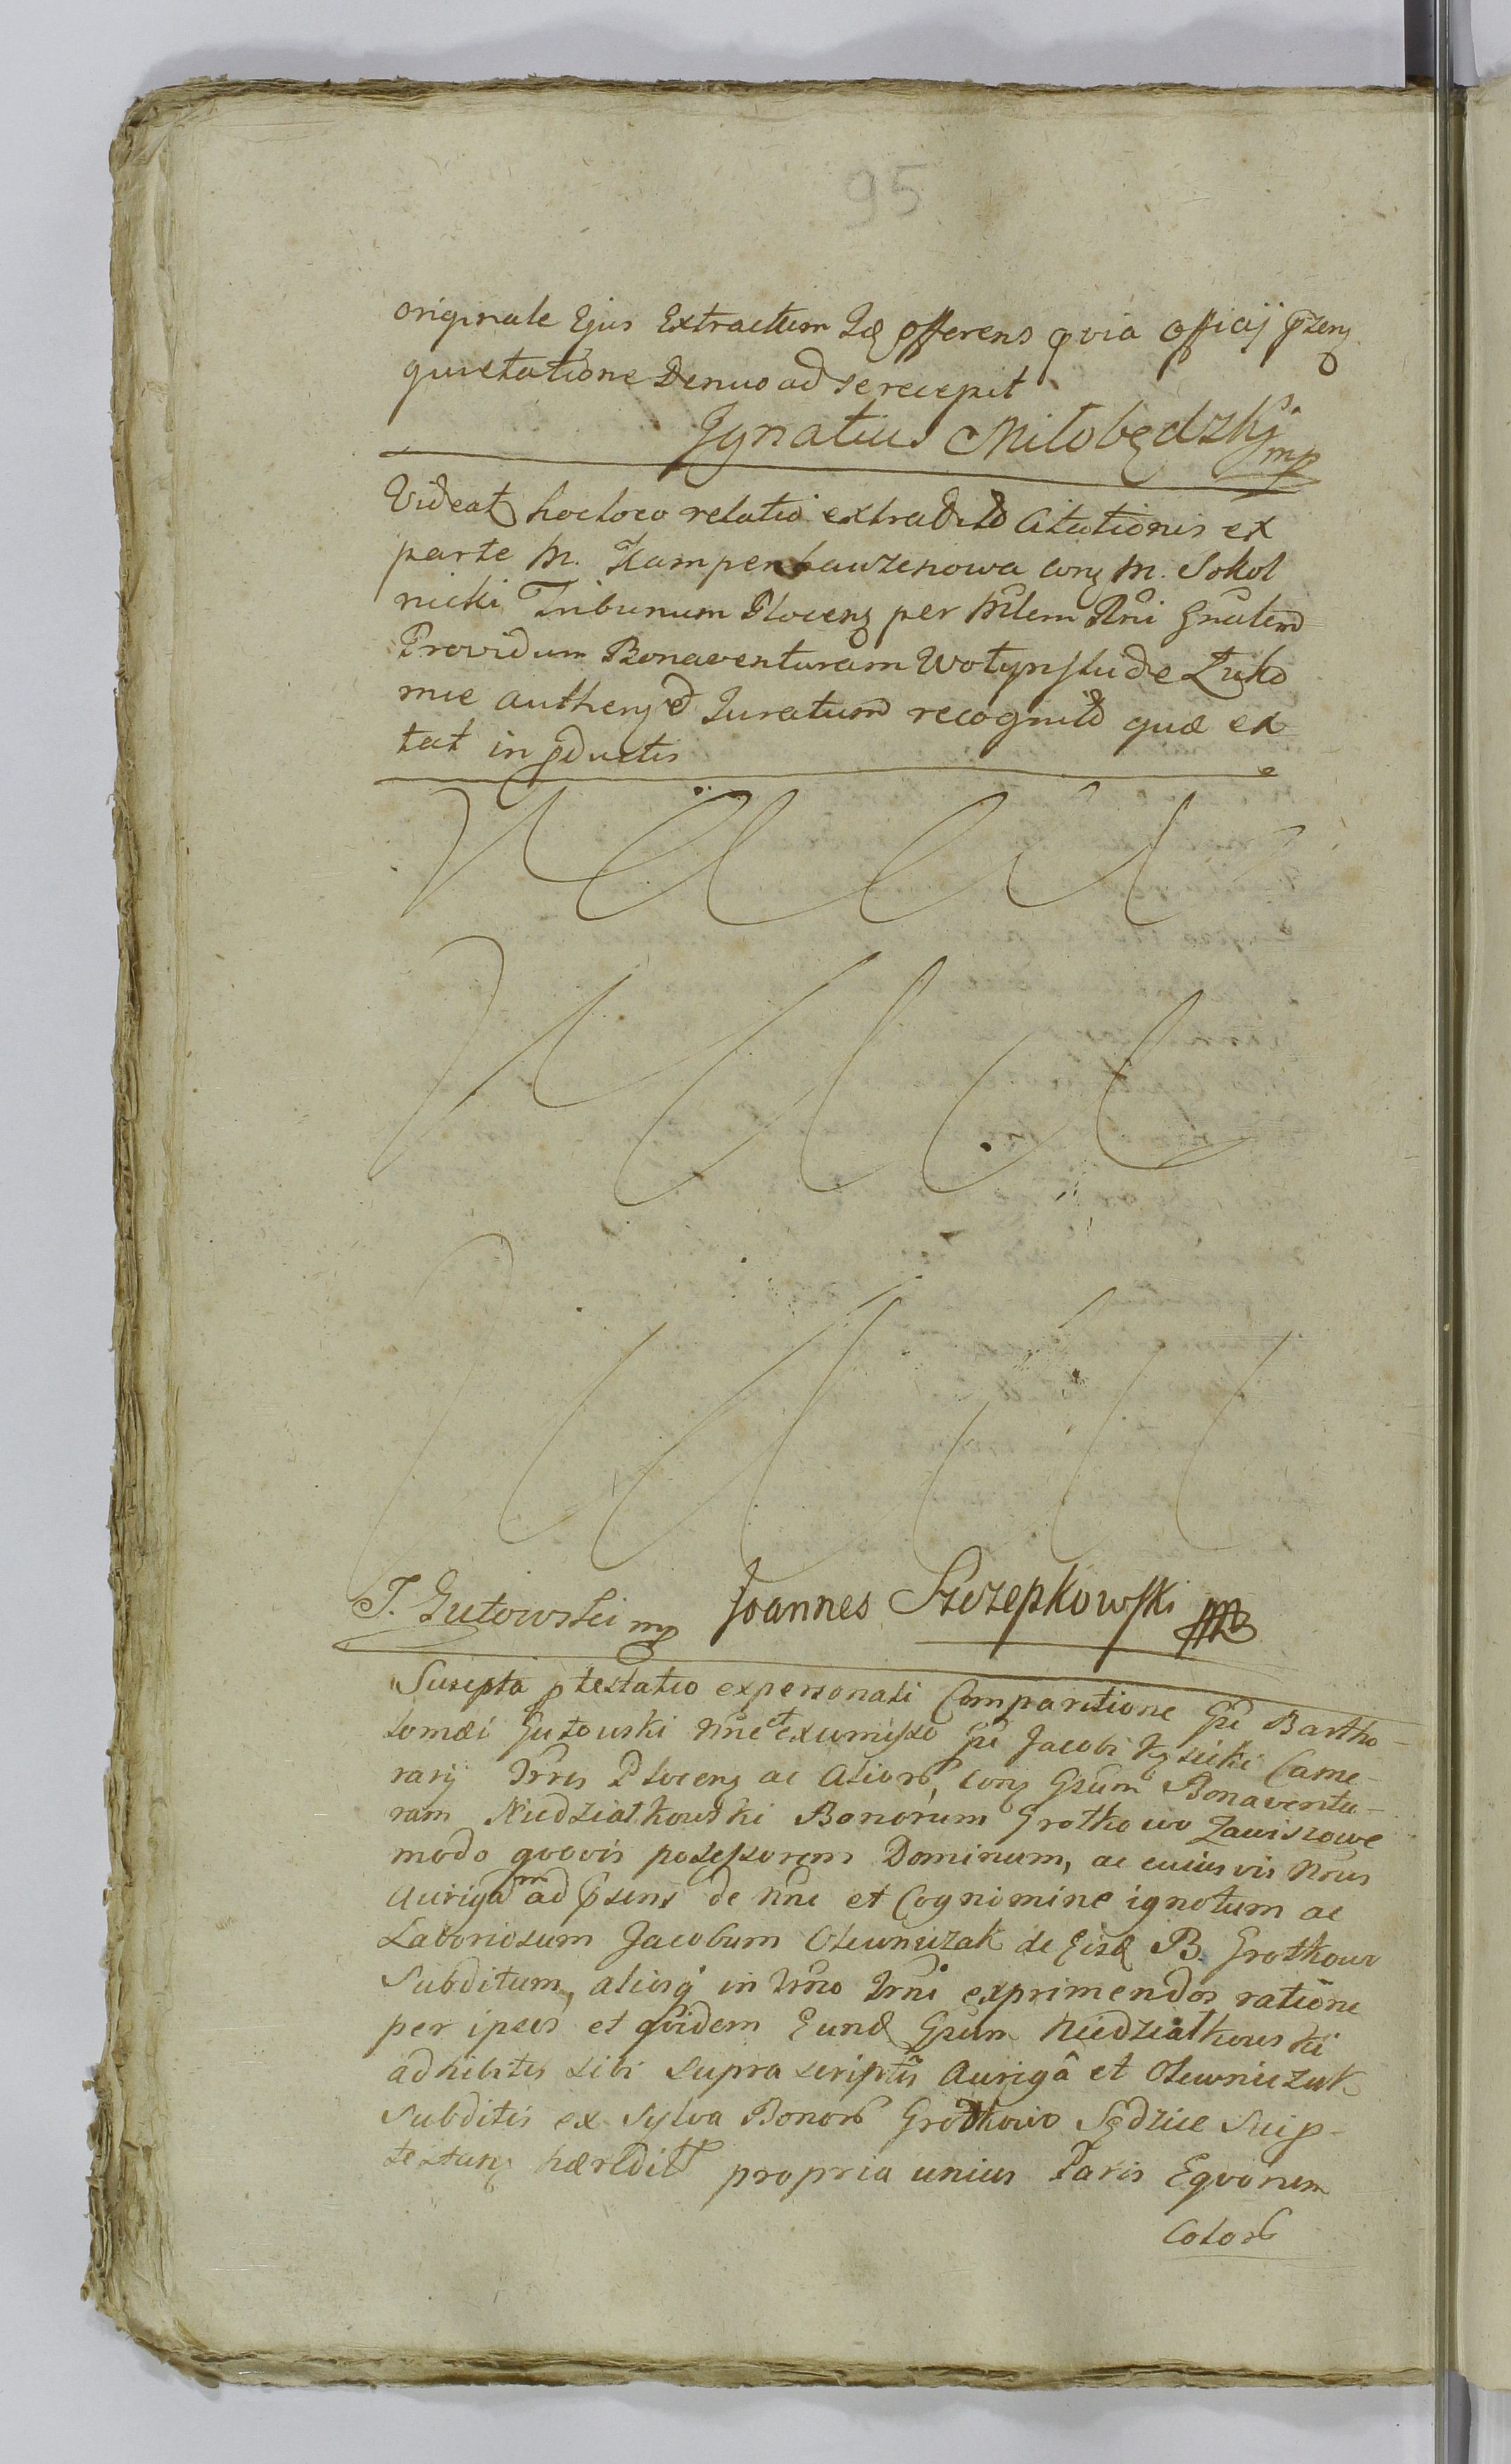 95
originale Ejus Extractum Id offerens qvia officij prnz
quietatione Denuo ad se recepit
Ignatius Miłobędzki mp
Videatz hocloco relatio extradit Citationis ex
parte M. Kampenhauzenowa conz M. Sokol
nicki Tribunum Plocenz per Mlem Rni Gnalem
Providum Bonaventuram Wołynski de Zuko
mie authenz et Juratum recognit quæ ex
tat in pductis
J. Gutowski mp Joannes Szczepkowski mp
Suscepta ptestatio expersonali Comparitione Gsi Bartho-
lomæi Gutowski nne et exumisso Gsi Jacobi Kęsicki Came-
rarij Trris Plocenz ac Alior, conz Gsum Bonaventu-
ram Niedziałkowski Bonorum Grotkowo Zawiszowe
modo qvovis possessorem Dominum, ac cuiusvis Nris
Aurigam ad psens de nne et Cognomine ignotum ac
Laboriosum Jacobum Olewniczak de Eisd B. Grotkowo
Subditum, aliosq in Trno Trni exprimendos ratione
per ipsos et qvidem Eund Gsum Niedziałkowski
adhibitis sibi supra scriptis Aurigâ et Olewniczak
Subditis ex Sylva Bonor Grotkowo Sędzice Suip-
testanz hæredit propria unius Paris Eqvorum
Color